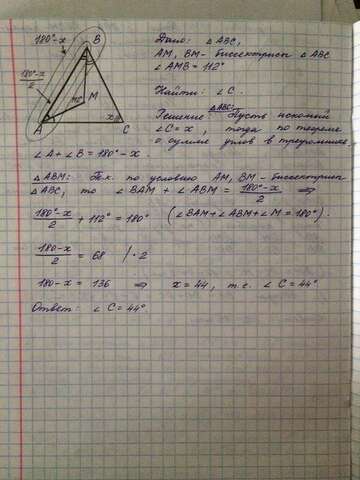 180°-x
B
Дано: △ABC,
AM, BM - биссектрисы △ABC
∠AMB = 112°
180°-x
2
Найти: ∠C.
112°
M
A
x
C
Решение △ABC: Пусть искомый
∠C = x, тогда по теореме
о сумме углов в треугольнике
∠A + ∠B = 180° - x.
△ABM: Т.к. по условию AM, BM - биссектрисы
△ABC, то ∠BAM + ∠ABM = 180°-x / 2 ⇒
180°-x / 2 + 112° = 180° (∠BAM + ∠ABM + ∠M = 180°).
180-x / 2 = 68 / · 2
180-x = 136 ⇒ x = 44, т.е. ∠C = 44°
Ответ: ∠C = 44°